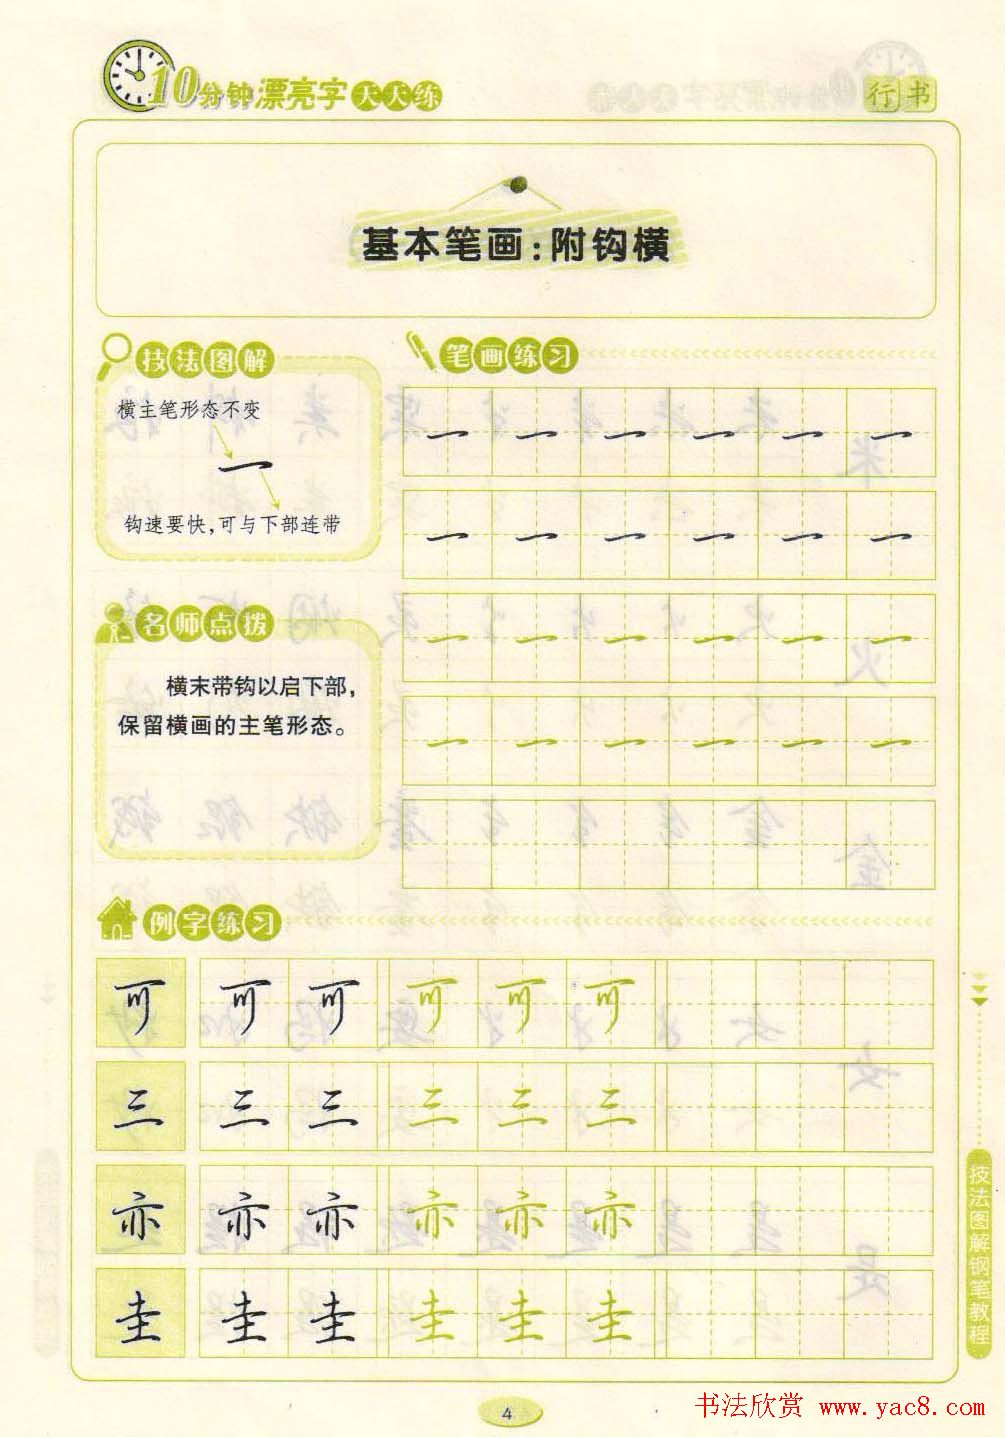 10分钟漂亮字天天练
行书
基本笔画:附钩横
技法图解
横主笔形态不变
一
钩速要快,可与下部连带
名师点拨
横末带钩以启下部,
保留横画的主笔形态。
笔画练习
一 一 一 一 一 一
一 一 一 一 一 一
一 一 一 一 一 一
一 一 一 一 一 一
例字练习
可 可 可 可 可 可
三 三 三 三 三 三
亦 亦 亦 亦 亦 亦
圭 圭 圭 圭 圭 圭
技法图解钢笔教程
4
书法欣赏 www.yac8.com